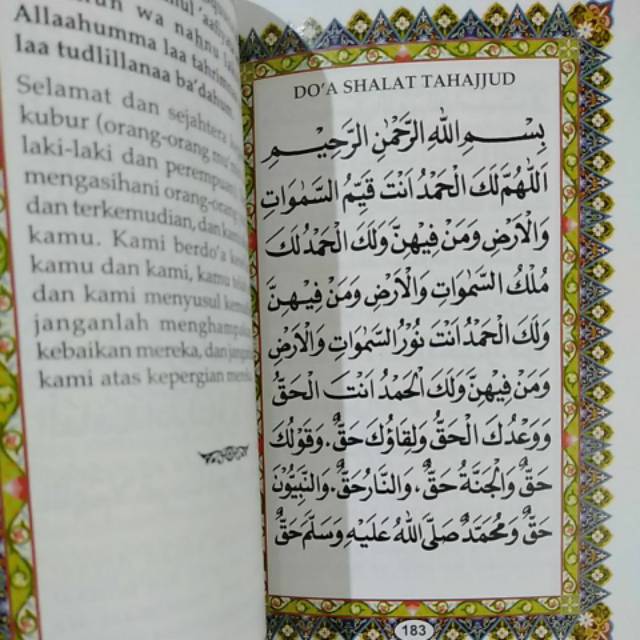 wa nahnu
Allaahumma laa
laa tudlillanaa ba'dahum
Selamat dan sejahtera
kubur (orang-orang
laki-laki dan perempuan
mengasihani orang-orang
dan terkemudian, dan
kamu. Kami berdo'a
kamu dan kami, kamu
dan kami menyusul
janganlah
kebaikan mereka, dan
kami atas kepergian
DO'A SHALAT TAHAJJUD
بِسْمِ اللهِ الرَّحْمٰنِ الرَّحِيْمِ
اَللّٰهُمَّ لَكَ الْحَمْدُ اَنْتَ قَيِّمُ السَّمٰوَاتِ
وَالْاَرْضِ وَمَنْ فِيْهِنَّ وَلَكَ الْحَمْدُ لَكَ
مُلْكُ السَّمٰوَاتِ وَالْاَرْضِ وَمَنْ فِيْهِنَّ
وَلَكَ الْحَمْدُ اَنْتَ نُوْرُ السَّمٰوَاتِ وَالْاَرْضِ
وَمَنْ فِيْهِنَّ وَلَكَ الْحَمْدُ اَنْتَ الْحَقُّ
وَوَعْدُكَ الْحَقُّ وَلِقَاؤُكَ حَقٌّ. وَقَوْلُكَ
حَقٌّ وَالْجَنَّةُ حَقٌّ، وَالنَّارُ حَقٌّ. وَالنَّبِيُّوْنَ
حَقٌّ وَمُحَمَّدٌ صَلَّى اللهُ عَلَيْهِ وَسَلَّمَ حَقٌّ
183